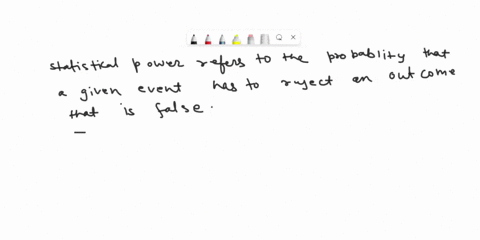 statistical power refers to the probablity that
a given event has to ruject an outcome
that is false.